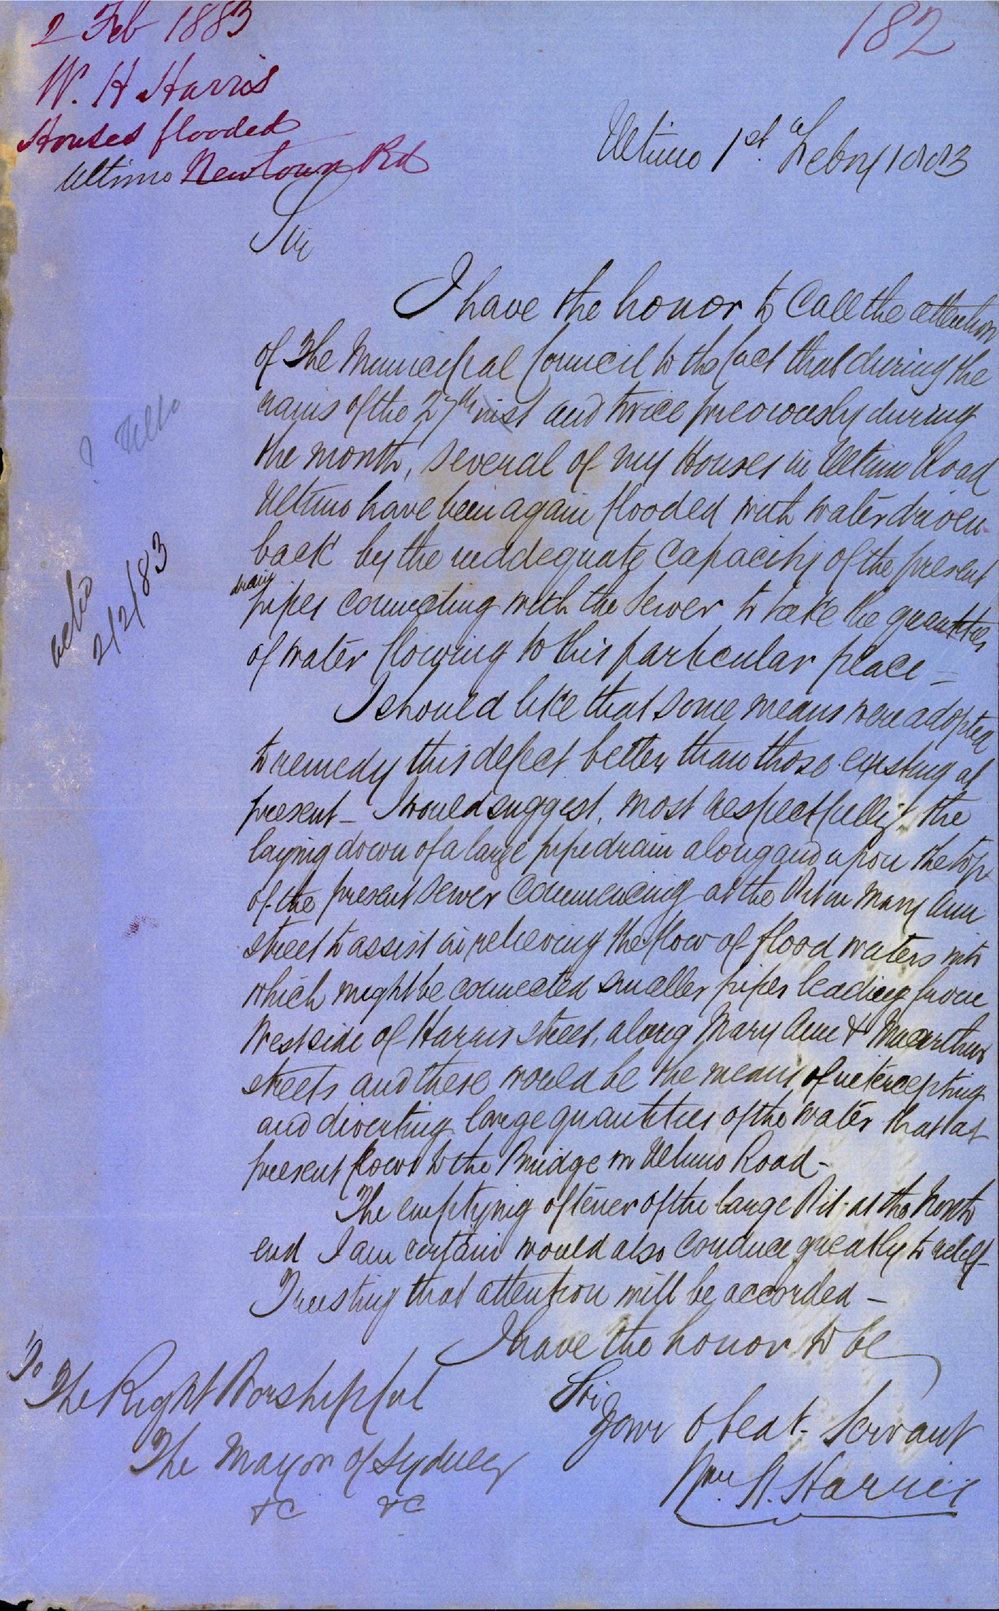 2 Feb 1883
182
W. H Harris
Houses flooded
Ultimo Newtown Rd
Ultimo 1st. Febry 1883
Sir
I have the honor to Call the attention
of the Municipal Council to the fact that during the
rains of the 27th inst and twice previously during
the month, several of my Houses in Ultimo Road
Ultimo have been again flooded with water driven
back by the inadequate capacity of the present
drain
pipes connecting with the Sewer to take the quantities
of water flowing to this particular place –
I should like that some means were adopted
to remedy this defect better than those existing at
present – I would suggest, most respectfully, the
laying down of a large pipe drain along and upon the top
of the present sewer commencing at the Pit in Mary Ann
street to assist in relieving the flow of flood waters into
which might be connected smaller pipes leading from
West side of Harris street, along Mary Ann & Macarthur
streets and these would be the means of intercepting
and diverting large quantities of the water that at
present flows to the Bridge in Ultimo Road –
The emptying oftener of the large Pit at the North
end I am certain would also conduce greatly to relief –
Trusting that attention will be accorded –
I have the honor to be
Sir
Your obeat. Servant
Wm. H. Harris
To
The Right Worshipful
The Mayor of Sydney
&c &c
2/2/83